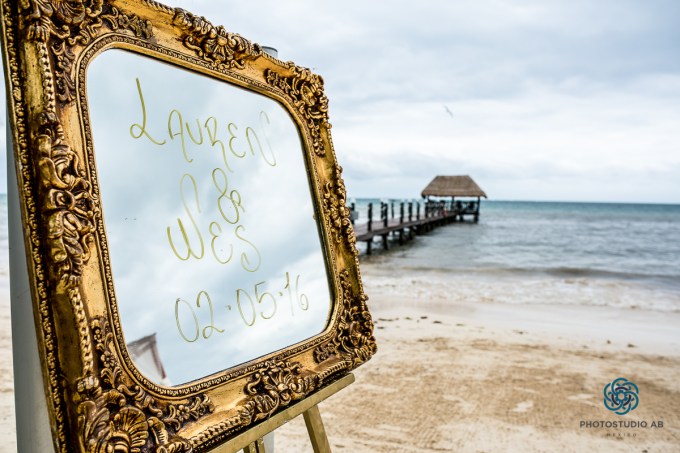 LAUREN
&
WES
02·05·16
PHOTOSTUDIO AB
MEXICO